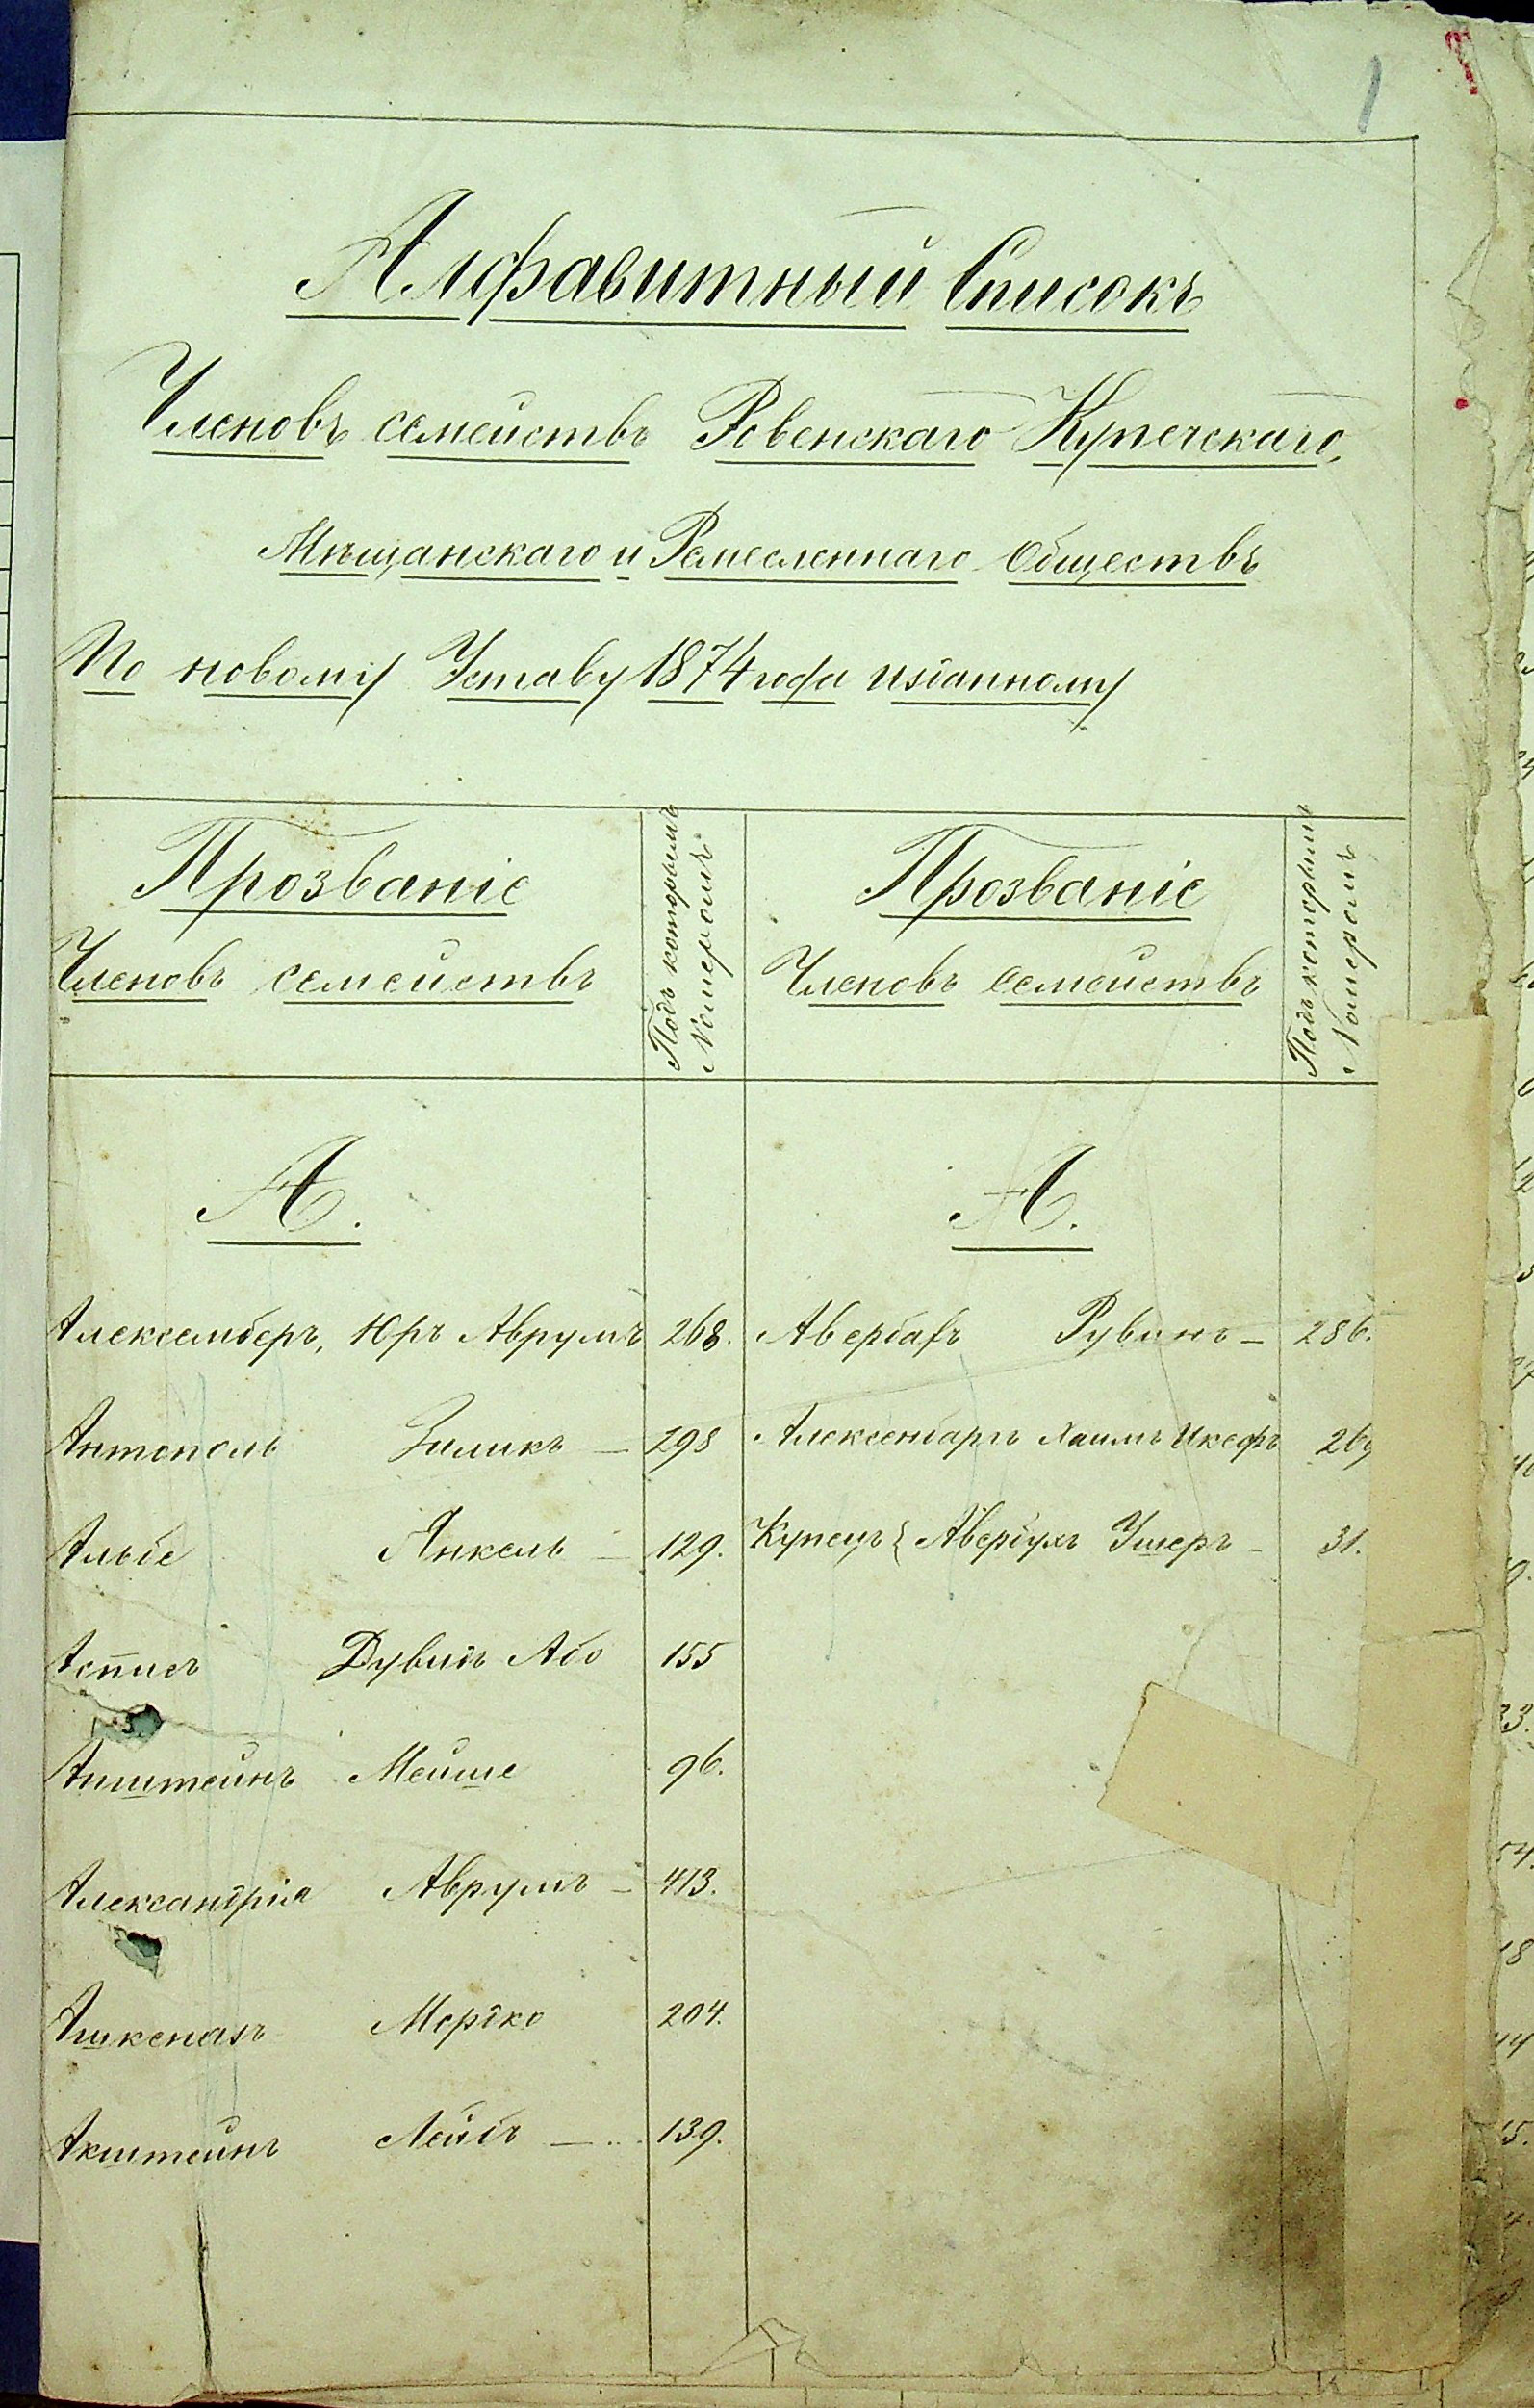 1
Алфавитный Списокъ
Членовъ семействъ Ровенскаго Купеческаго,
Мѣщанскаго и Ремесленнаго Обществъ
По новому Уставу 1874 года изданному
Прозваніе
Членовъ семействъ
Подъ которымъ
Номеромъ
Прозваніе
Членовъ семействъ
Подъ которымъ
Номеромъ
А.
А.
Алексемберъ, Юръ Аврумъ 268.
Антополь Зиликъ — 298
Альбе Янкель — 129.
Асписъ Дувидъ Або 155
Апштейнъ Мейше 96.
Александрія Аврумъ — 413.
Ашкеназъ Мордко 204.
Акштейнъ Лейбъ — 139.
Авербахъ Рувинъ — 286.
Алексенбаръ Хаимъ 269
Купецъ { Авербухъ Ушеръ — 31.